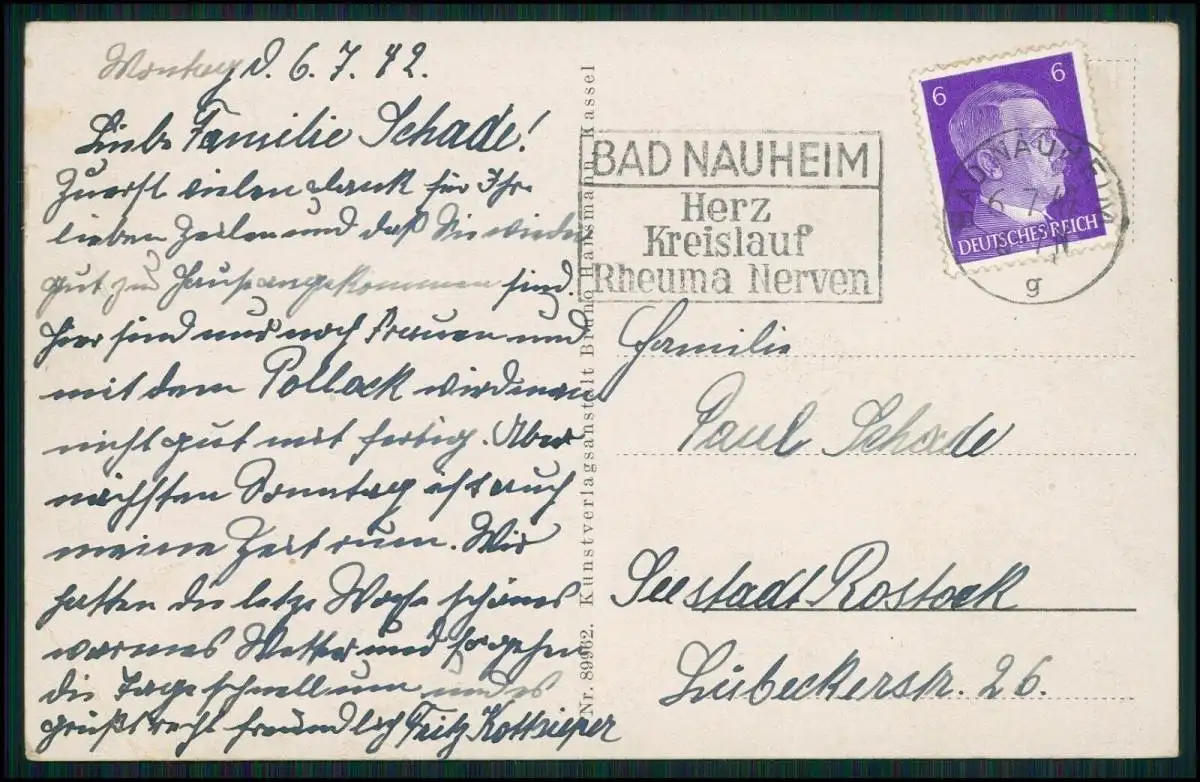 Montag d. 6.7.42.
Liebe Familie Schade!
Zuerst vielen dank für Ihre
lieben Zeilen und daß Sie wieder
gut zu Hause angekommen sind.
Hier sind nur noch Frauen und
mit dem Pollack wird man
nicht gut mit fertig. Aber
nächsten Sonntag ist auch
meine Zeit rum. Wir
hatten die letze Woche schönes
warmes Wetter und so gehen
die Tage schnell um und es
grüßt recht freundlich Fritz
Nr. 89962. Kunstverlagsanstalt Bruno Hansmann, Kassel
BAD NAUHEIM
Herz
Kreislauf
Rheuma Nerven
6 6
DEUTSCHES REICH
BAD NAUHEIM
6.7.42
g
Familie
Paul Schade
Seestadt Rostock
Lübeckerstr. 26.